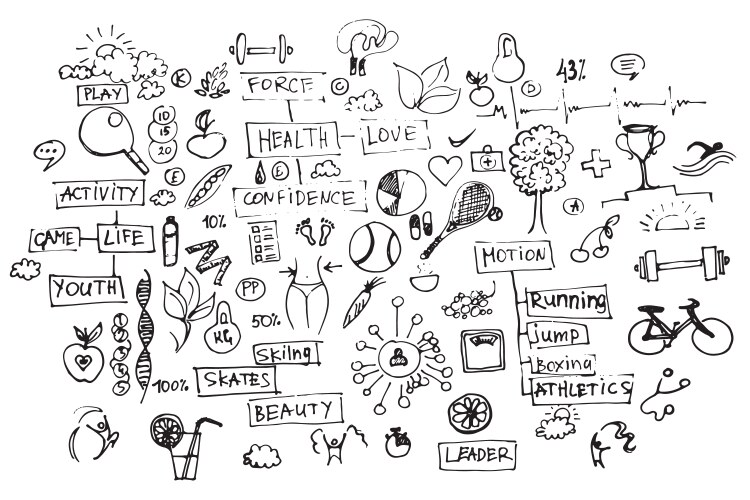 K
FORCE
C
43%
PLAY
D
10
15
20
HEALTH
LOVE
E
E
ACTIVITY
CONFIDENCE
A
10%
GAME
LIFE
MOTION
YOUTH
PP
Running
1
2
3
4
5
KG
50%
jump
Skilng
Boxing
100%
SKATES
ATHLETICS
BEAUTY
LEADER